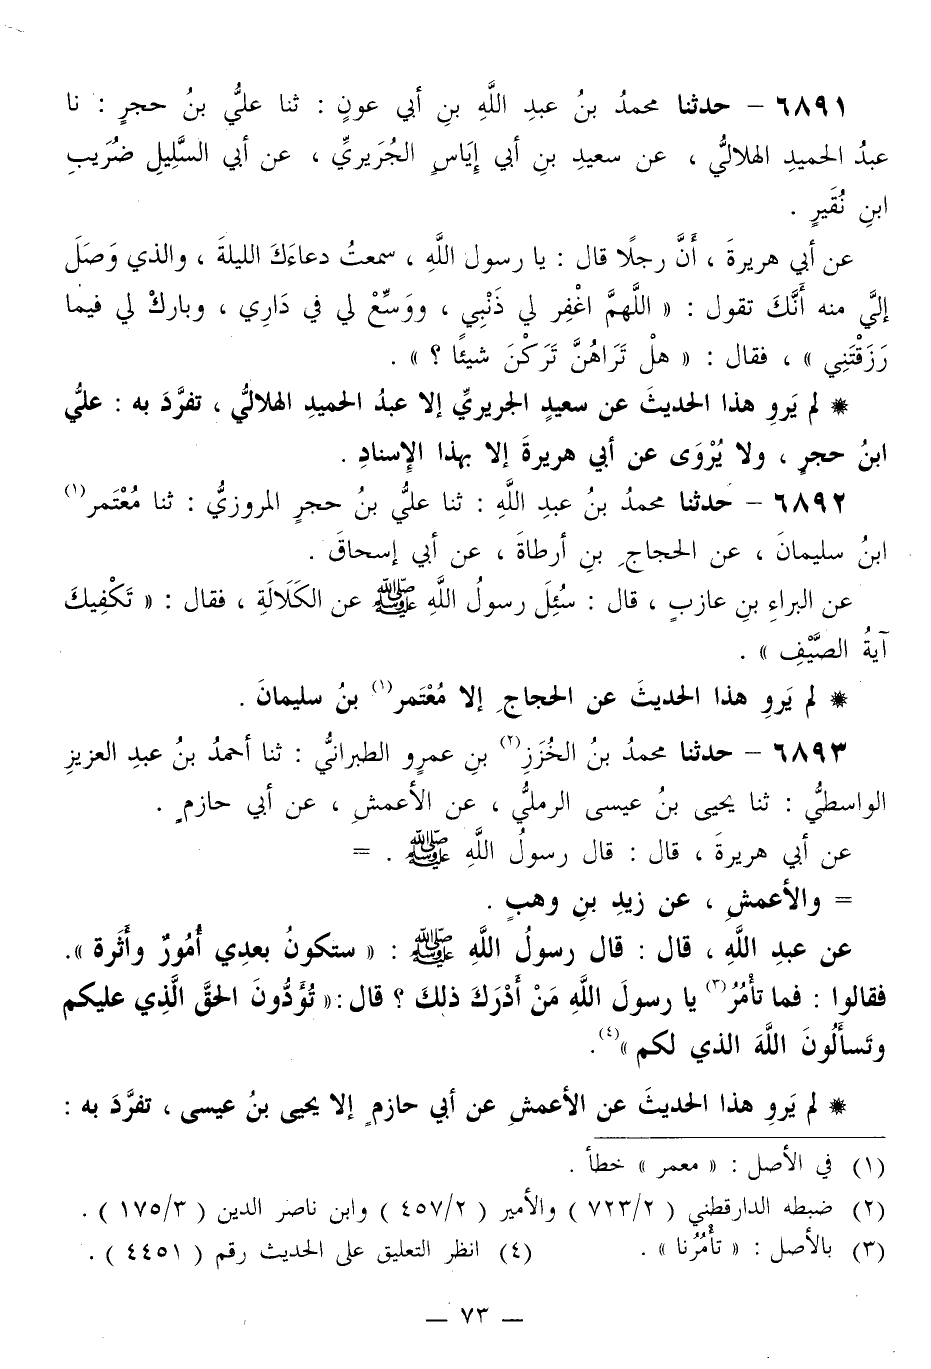 ٦٨٩١ – حدثنا محمدُ بنُ عبدِ اللَّهِ بنِ أبي عونٍ : ثنا عليُّ بنُ حجرٍ : نا
عبدُ الحميدِ الهلاليُّ ، عن سعيدِ بنِ أبي إيَاسٍ الجُرَيريِّ ، عن أبي السَّلِيلِ ضُرَيبِ
ابنِ نُقَيرٍ .
عن أبي هريرةَ ، أَنَّ رجلًا قال : يا رسول اللَّهِ ، سمعتُ دعاءَكَ الليلةَ ، والذي وَصَلَ
إليَّ منه أَنَّكَ تقول : « اللَّهمَّ اغْفِر لي ذَنْبِي ، ووَسِّعْ لي في دَارِي ، وباركْ لي فيما
رَزَقْتَنِي » ، فقال : « هلْ تَرَاهُنَّ تَرَكْنَ شيئًا ؟ » .
* لم يَروِ هذا الحديثَ عن سعيدٍ الجريريِّ إلا عبدُ الحميدِ الهلاليُّ ، تفرَّدَ به : عليُّ
ابنُ حجرٍ ، ولا يُرْوَى عن أبي هريرةَ إلا بهذا الإسنادِ .
٦٨٩٢ – حدثنا محمدُ بنُ عبدِ اللَّهِ : ثنا عليُّ بنُ حجرٍ المروزيُّ : ثنا مُعْتَمر(١)
ابنُ سليمانَ ، عن الحجاجِ بنِ أرطاةَ ، عن أبي إسحاقَ .
عن البراءِ بنِ عازبٍ ، قال : سُئِلَ رسولُ اللَّهِ ﷺ عن الكَلَالَةِ ، فقال : « تَكْفِيكَ
آيةُ الصَّيْفِ » .
* لم يَروِ هذا الحديثَ عن الحجاجِ إلا مُعْتَمر(١) بنُ سليمانَ .
٦٨٩٣ – حدثنا محمدُ بنُ الخُزَزِ(٢) بنِ عمرٍو الطبرانيُّ : ثنا أحمدُ بنُ عبدِ العزيزِ
الواسطيُّ : ثنا يحيى بنُ عيسى الرمليُّ ، عن الأعمشِ ، عن أبي حازمٍ .
عن أبي هريرةَ ، قال : قال رسولُ اللَّهِ ﷺ . =
= والأعمشِ ، عن زيدِ بنِ وهبٍ .
عن عبدِ اللَّهِ ، قال : قال رسولُ اللَّهِ ﷺ : « ستكونُ بعدِي أُمُورٌ وأَثَرة ».
فقالوا : فما تأْمُرُ(٣) يا رسولَ اللَّهِ مَنْ أَدْرَكَ ذلكَ ؟ قال :« تُؤَدُّونَ الحقَّ الَّذِي عليكم
وتَسأَلُونَ اللَّهَ الذي لكم »(٤).
* لم يَروِ هذا الحديثَ عن الأعمشِ عن أبي حازمٍ إلا يحيى بنُ عيسى ، تفرَّدَ به :
(١) في الأصل : « معمر » خطأ .
(٢) ضبطه الدارقطني ( ٧٢٣/٢ ) والأمير ( ٤٥٧/٢ ) وابن ناصر الدين ( ١٧٥/٣ ) .
(٣) بالأصل : « تأْمُرُنا » . (٤) انظر التعليق على الحديث رقم ( ٤٤٥١ ) .
— ٧٣ —